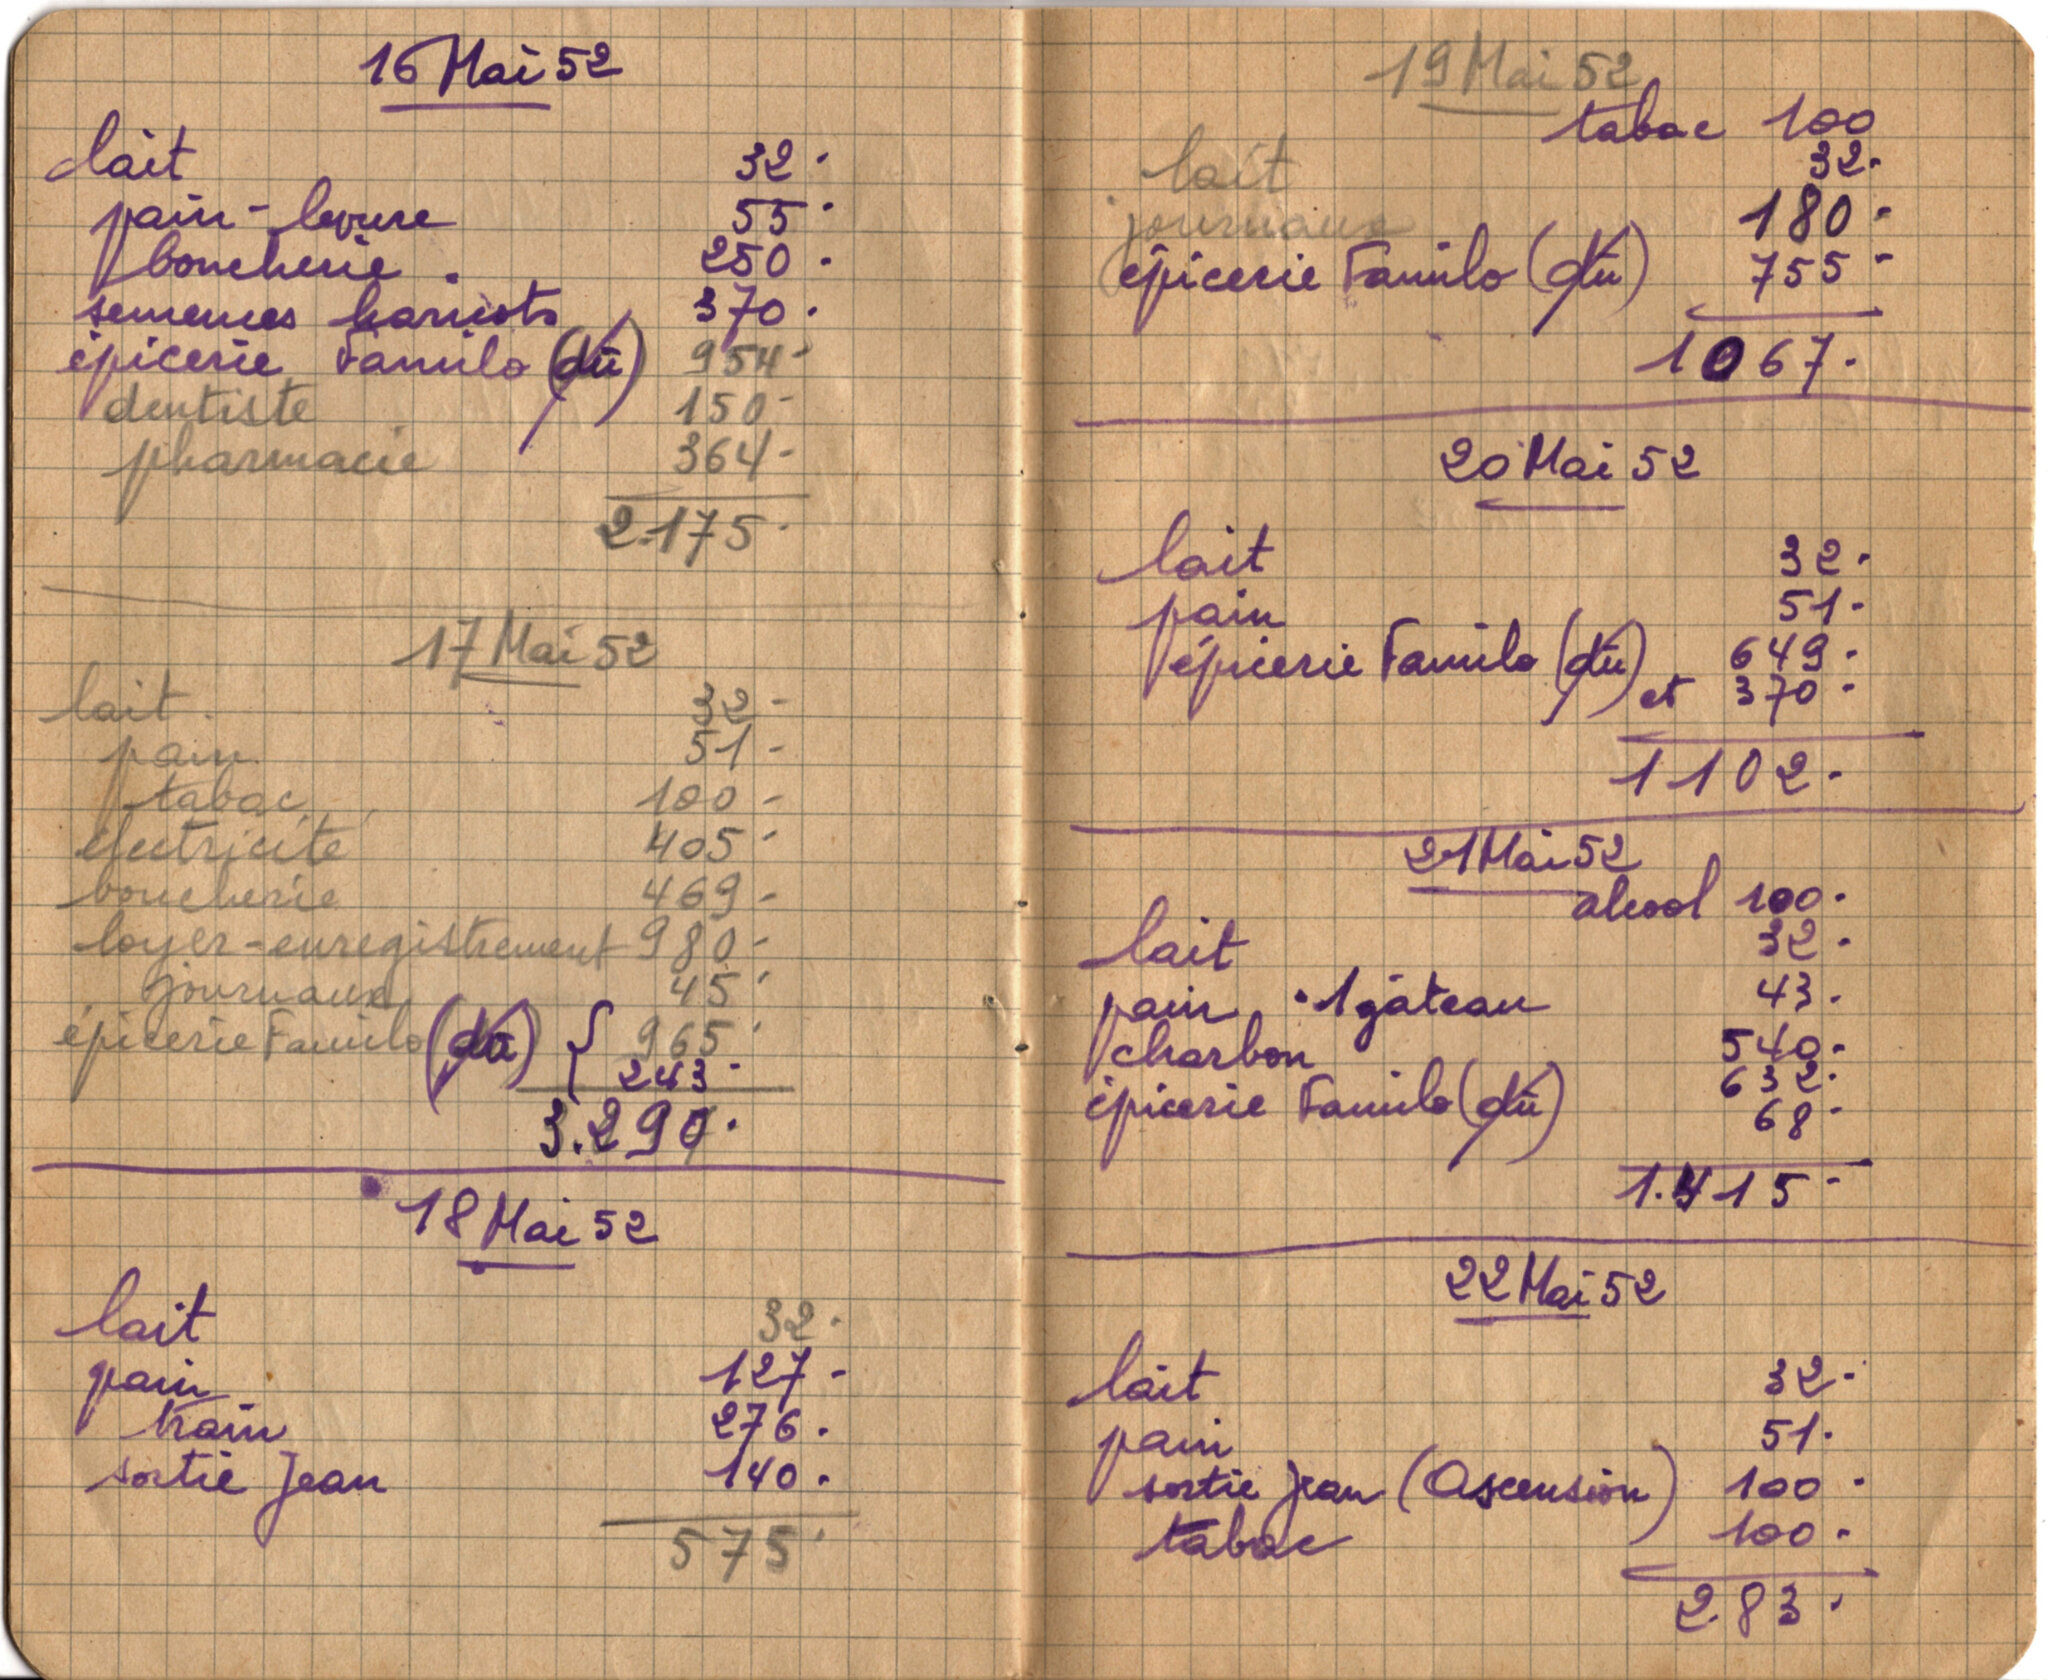 16 Mai 52
lait 32.
pain - levure 55.
boucherie. 250.
semences haricots 370.
épicerie Familo (dû) 954-
dentiste 150-
pharmacie 364-
2.175.
17 Mai 52
lait. 32-
pain 51-
tabac 100-
électricité 405-
boucherie 469-
loyer-enregistrement 980-
journaux 45-
épicerie Familo (dû) { 965-
243-
3.290.
18 Mai 52
lait 32.
pain 127-
train 276.
sortie Jean 140.
575.
19 Mai 52
tabac 100
lait 32.
journaux 180-
épicerie Familo (dû) 755-
1067.
20 Mai 52
lait 32.
pain 51.
épicerie Familo (dû) 649.
et 370.
1102.
21 Mai 52
alcool 100.
lait 32.
pain . 1 gâteau 43.
charbon 540.
épicerie Familo (dû) 632.
68-
1.415-
22 Mai 52
lait 32.
pain 51.
sortie Jean (Ascension) 100.
tabac 100.
283.